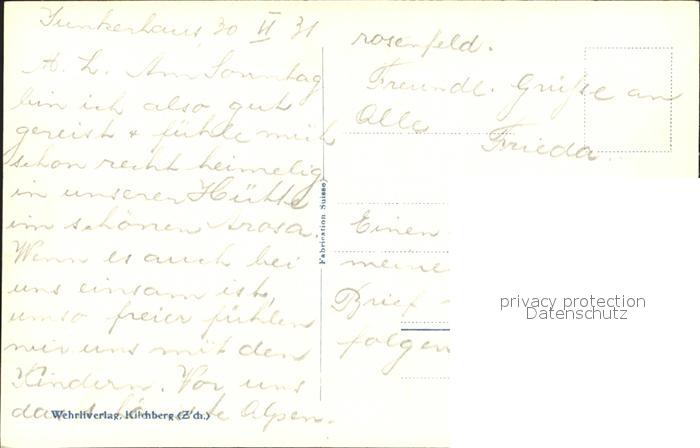 Junkerhaus, 30 II 31
A. L. Am Sonntag
bin ich also gut
gereist & fühle mich
schon recht heimelig
in unserer Hütte
im schönen Arosa.
Wenn es auch bei
uns einsam ist,
umso freier fühlen
wir uns mit den
Kindern. Vor uns
das schönste Alpen-
rosenfeld.
Freundl. Grüße an
Alle Frieda.
Einen
meine
Brief
folgen
Fabrication Suisse
Wehrliverlag, Kilchberg (Zch.)
privacy protection
Datenschutz